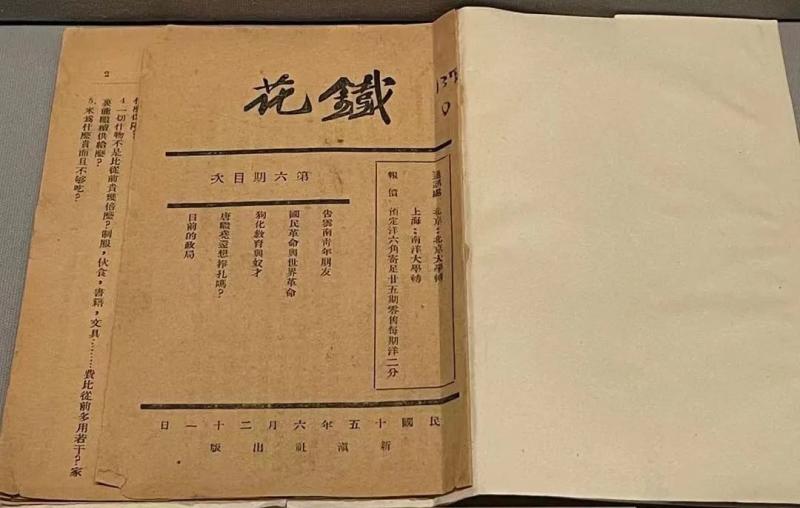 鐵花
第六期目次
通訊處 北京：北京大學轉
上海：南洋大學轉
報價 預定洋六角寄足廿五期零售每期洋二分
告雲南青年朋友
國民革命與世界革命
狗化教育與奴才
唐繼堯還想掙扎嗎？
目前的政局
民國十五年六月二十一日
新滇社出版
2
4.一切什物不是比從前貴幾倍麼？制服，伙食，書籍，文具………費比從前多用若干？家
裏能繼續供給麼？
5.米爲什麼貴而且不够吃？